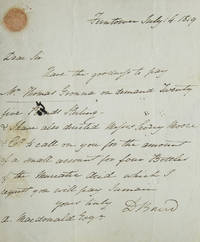 Ferntower July 4 1809
Dear Sir
Have the goodness to pay
Mr Thomas on demand Twenty
five Pounds Sterling -
I have also directed Messrs Moore
& Co to call on you for the amount
of a small account for four Bottles
of the Muriatic Acid which I
request you will pay I remain
yours truly
D Baird
A. Macdonald Esqr